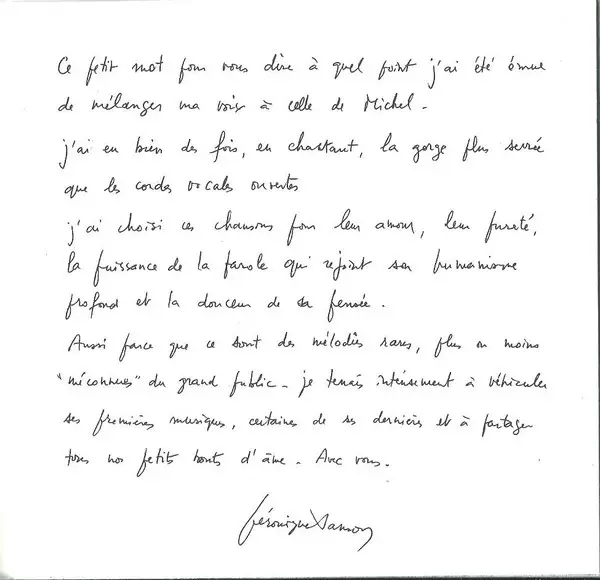 Ce petit mot pour vous dire à quel point j'ai été émue
de mélanger ma voix à celle de Michel -
j'ai eu bien des fois, en chantant, la gorge plus serrée
que les cordes vocales ouvertes
j'ai choisi ces chansons pour leur amour, leur pureté,
la puissance de la parole qui rejoint son humanisme
profond et la douceur de sa pensée.
Aussi parce que ce sont des mélodies rares, plus ou moins
"méconnues" du grand public - je tenais intensément à véhiculer
ses premières musiques, certaines de ses dernières et à partager
tous nos petits bouts d'âme - Avec vous.
Véronique Sanson